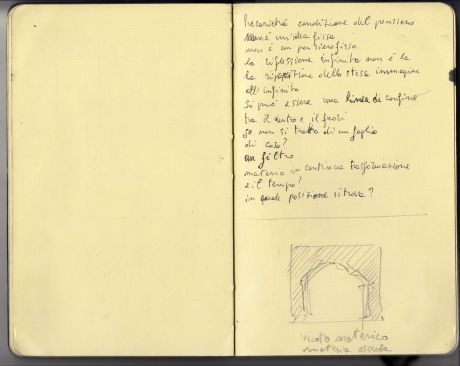 Precarietà condizione del pensiero
non è un'idea fissa
non è un pensiero fisso
la riflessione infinita non è la
la ripetizione della stessa immagine
all'infinito
si può essere una linea di confine
tra il dentro e il fuori
se non si tratta di un taglio
di cosa?
un filtro
materia in continua trasformazione
e il tempo?
in quale posizione si trova?
vuoto materico
materia oscura